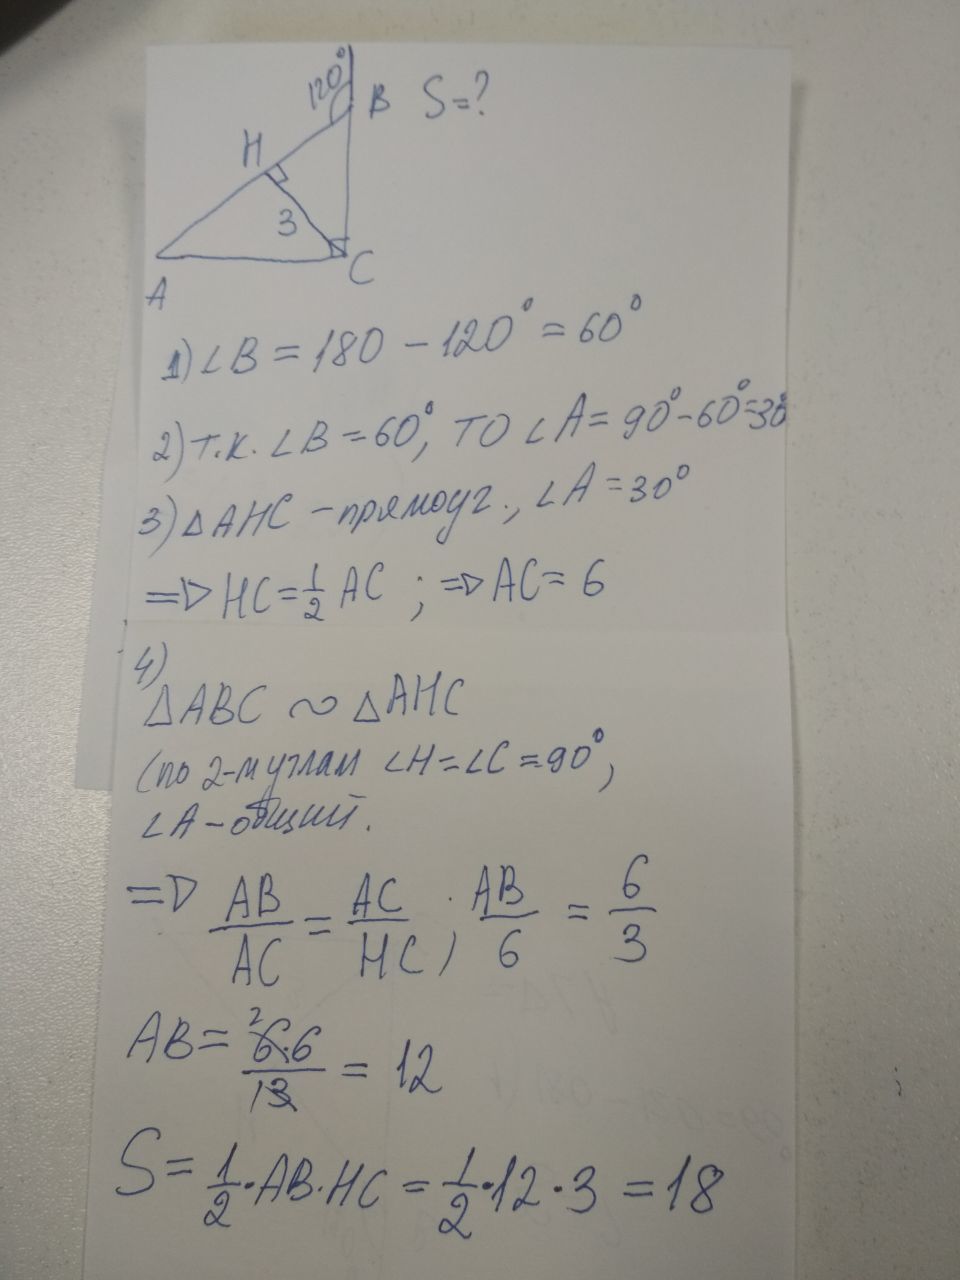 120° B S=?
H
3
A C
1) ∠B = 180 - 120° = 60°
2) т.к. ∠B = 60°, то ∠A = 90° - 60° = 30°
3) △AHC - прямоуг., ∠A = 30°
=> HC = 1/2 AC ; => AC = 6
4)
△ABC ∼ △AHC
(по 2-м углам ∠H = ∠C = 90°,
∠A - общий.
=> AB/AC = AC/HC ; AB/6 = 6/3
AB = 6·6/3 = 12
S = 1/2 · AB · HC = 1/2 · 12 · 3 = 18